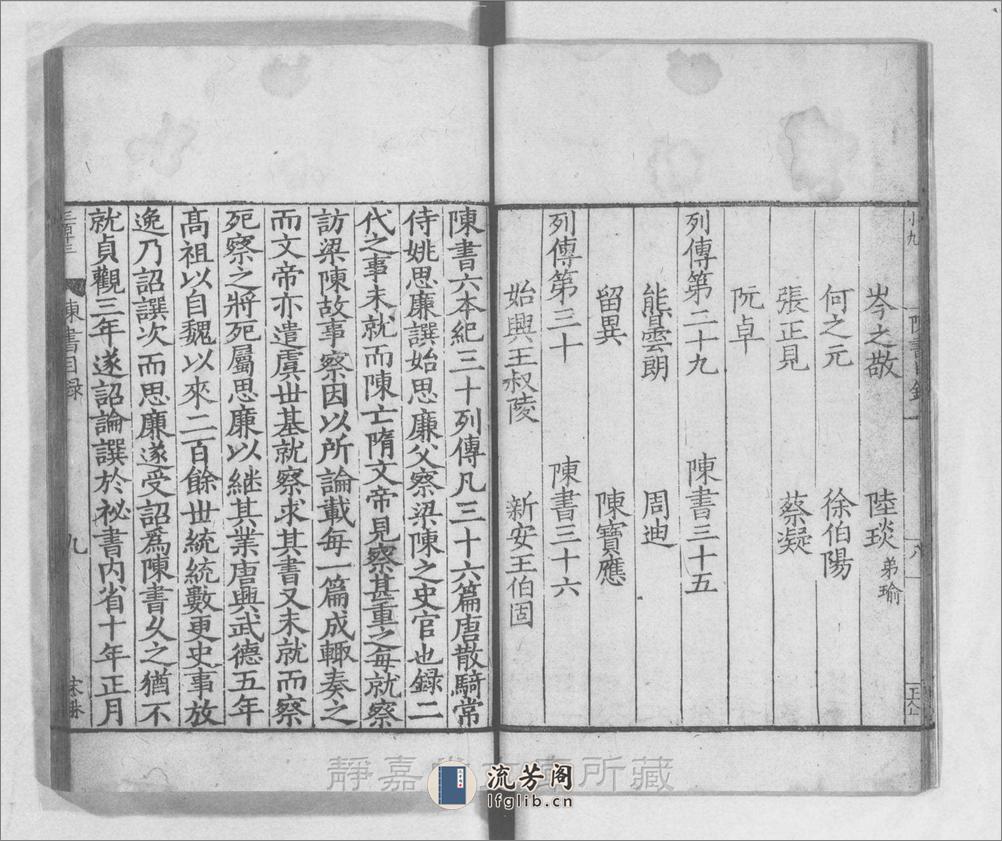 岑之敬 陸琰 弟瑜
何之元 徐伯陽
張正見 蔡凝
阮卓
列傳第二十九 陳書三十五
熊曇朗 周迪
留異 陳寶應
列傳第三十 陳書三十六
始興王叔陵 新安王伯固
陳書六本紀三十列傳凡三十六篇唐散騎常
侍姚思廉譔始思廉父察梁陳之史官也録二
代之事未就而陳亡隋文帝見察甚重之每就察
訪梁陳故事察因以所論載每一篇成輙奏之
而文帝亦遣虞世基就察求其書又未就而察
死察之將死屬思廉以継其業唐興武德五年
髙祖以自魏以來二百餘世統統數更史事放
逸乃詔譔次而思廉遂受詔爲陳書久之猶不
就貞觀三年遂詔論譔於祕書内省十年正月
陳書目録
九
靜嘉堂文庫所藏
流芳阁
lfglib.cn